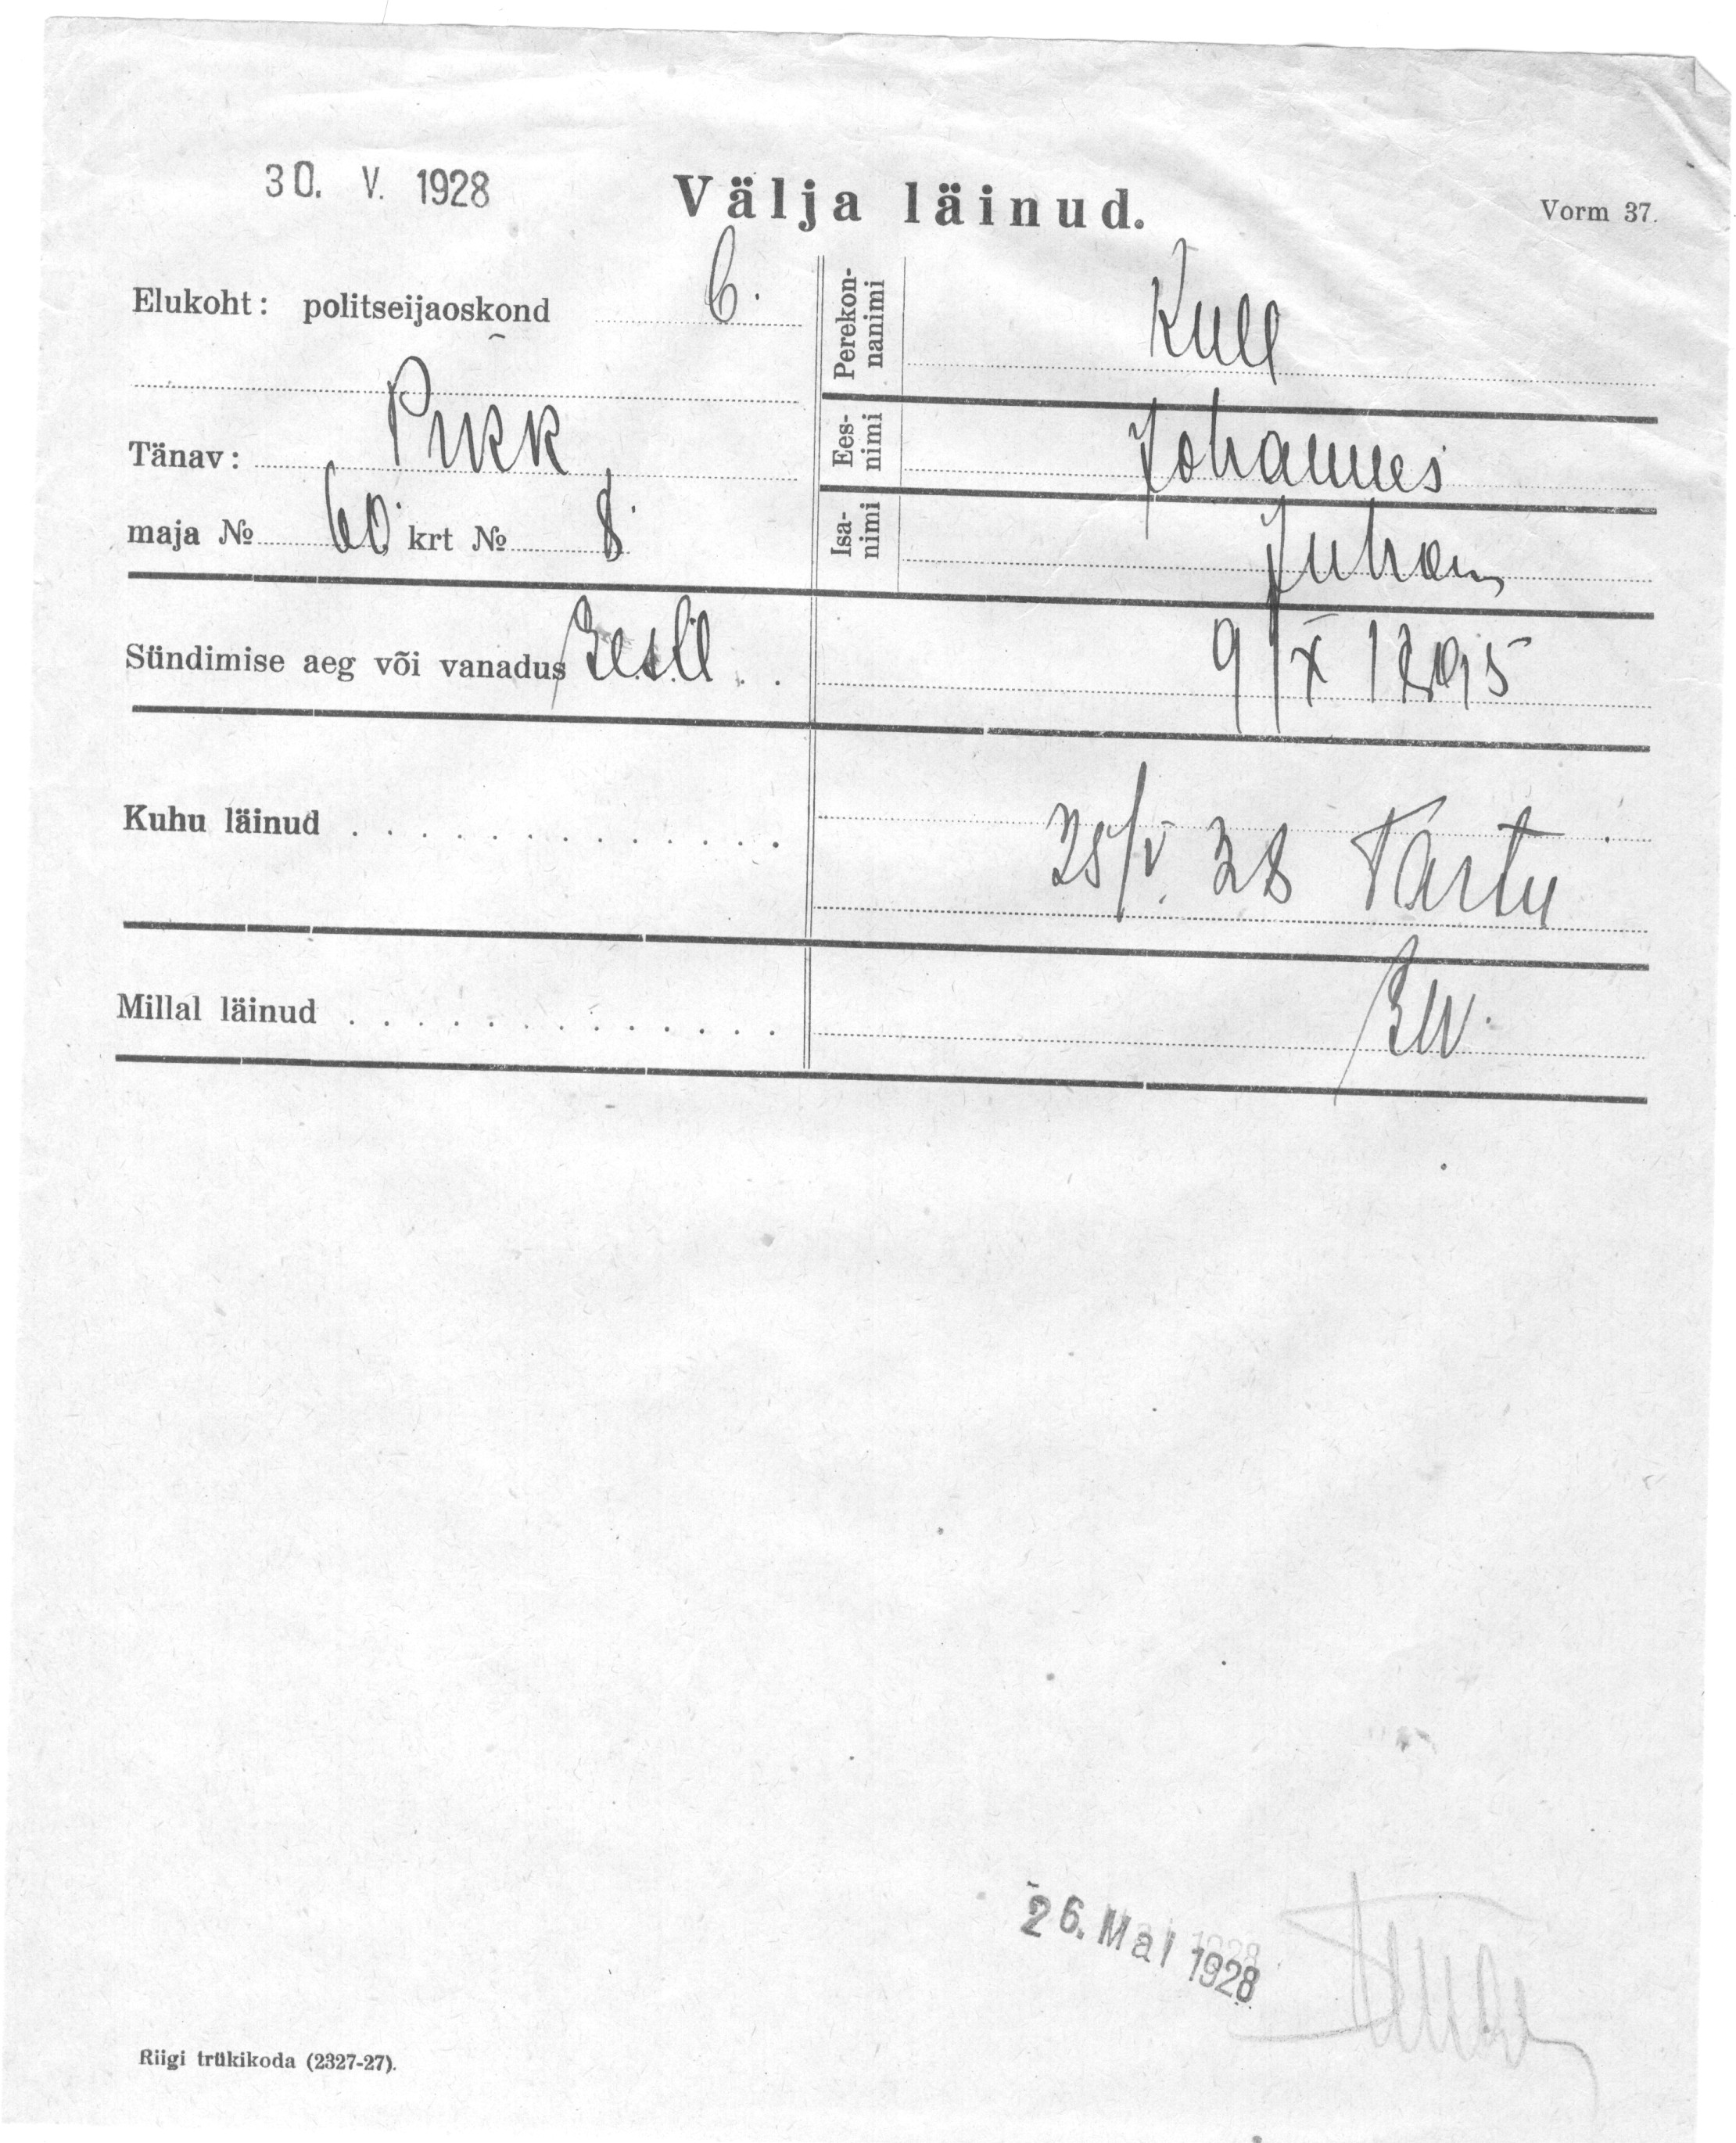 30. V. 1928
Välja läinud.
Vorm 37.
Elukoht: politseijaoskond 6.
Perekon-
nanimi
Kull
Tänav: Pikk
Ees-
nimi
Johannes
maja № 60 krt № 8
Isa-
nimi
Juhan
Sündimise aeg või vanadus Eesti
9/X 1895
Kuhu läinud
25/V. 28 Tartu
Millal läinud
26. Mai 1928
Riigi trükikoda (2327-27).